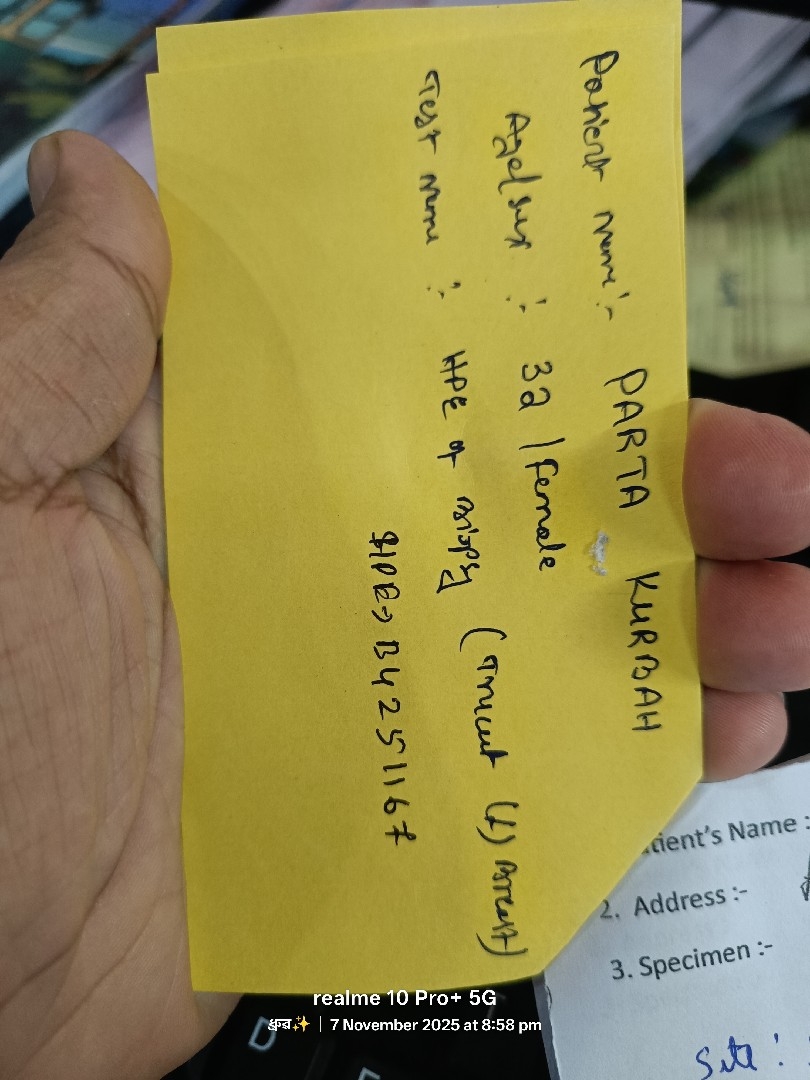 Patient name:- PARTA KURBAH
Age/sex :- 32 / Female
Test name :- HPE of Biopsy (Trucut (L) Breast)
HPE→ B4251167
tient's Name :
2. Address :-
3. Specimen :-
Site :
realme 10 Pro+ 5G
7 November 2025 at 8:58 pm